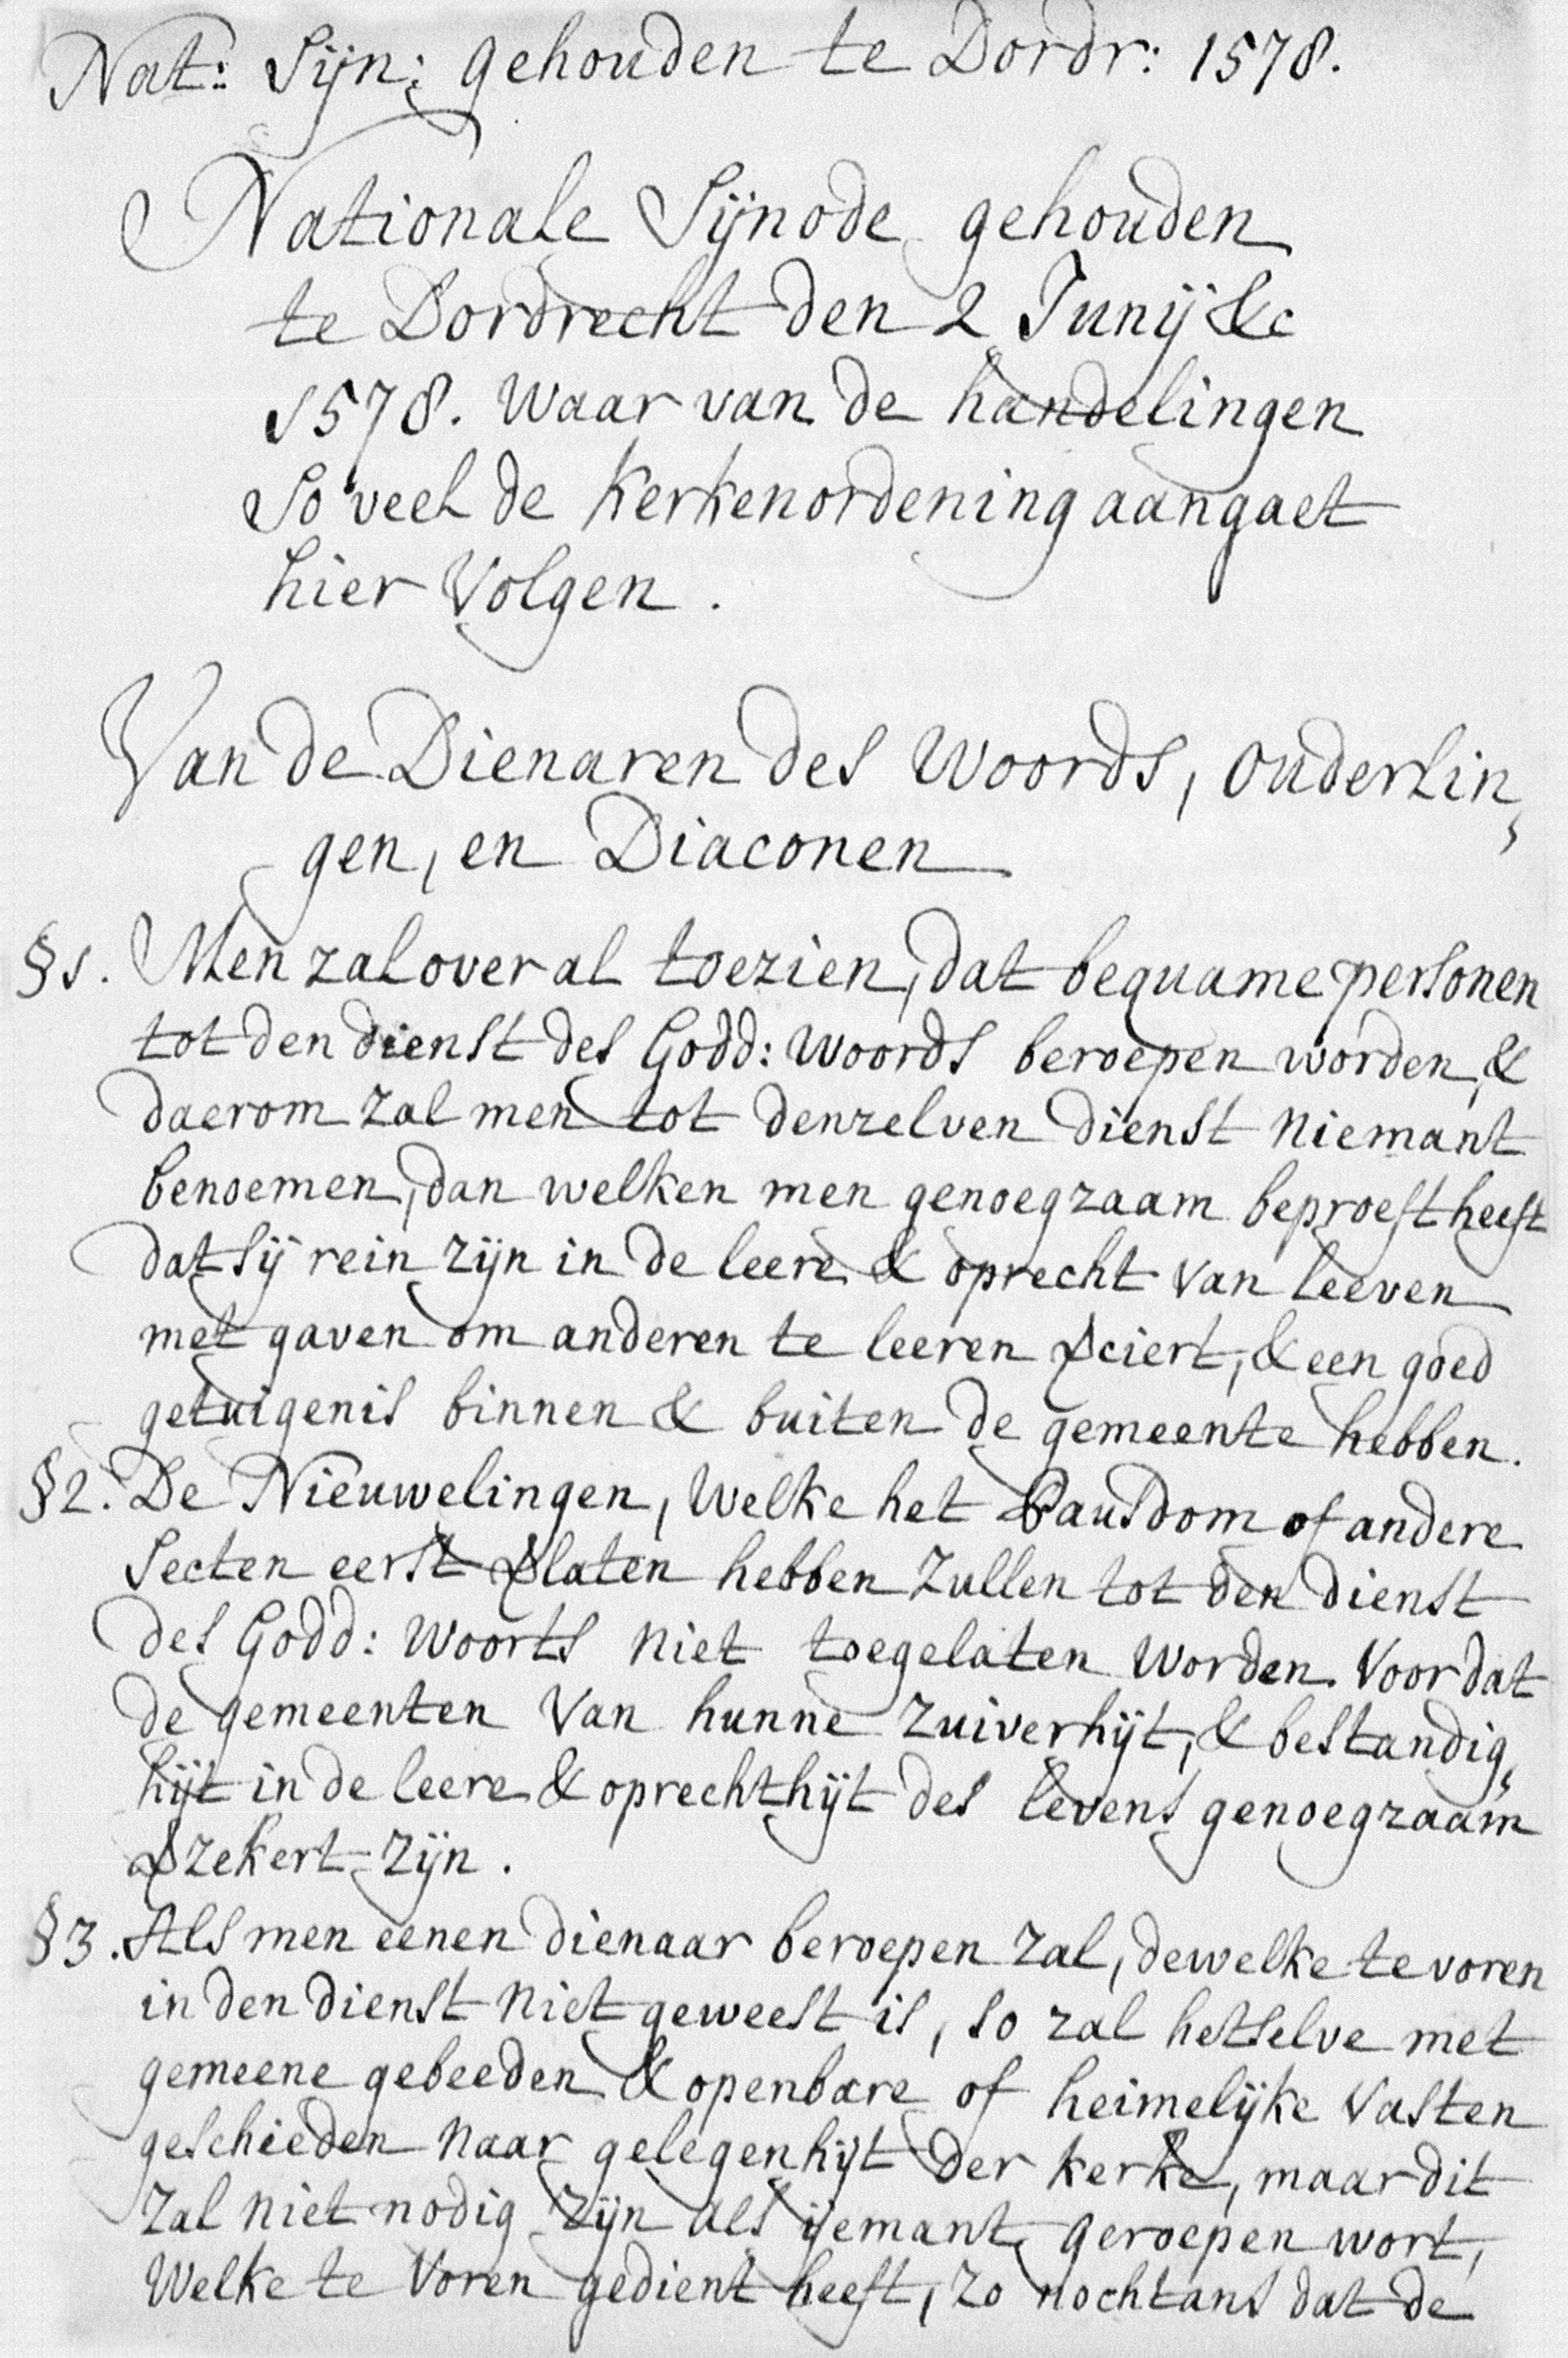 Nat: Sijn: gehouden te Dordr: 1578.
Nationale Sijnode gehouden
te Dordrecht den 2 Junij &c
1578. Waar van de handelingen
So veel de Kerkenordening aangaet
hier Volgen.
Van de Dienaren des Woords, Ouderlin„
gen, en Diaconen
§1. Men zal over al toezien, dat bequame personen
tot den dienst des Godd: Woords beroepen worden, &
daerom zal men tot denzelven dienst Niemant
benoemen, dan welken men genoegzaam beproeft heeft
dat sij rein zijn in de leere & oprecht van leeven
met gaven om anderen te leeren ciert, & een goed
getuigenis binnen & buiten de gemeente hebben.
§2. De Nieuwelingen, Welke het Pausdom of andere
Secten eerst laten hebben zullen tot den dienst
des Godd: Woorts Niet toegelaten Worden Voor dat
de gemeenten Van hunne zuiverhijt, & bestandig„
hijt in de leere & oprechthijt des levens genoegzaam
zekert zijn.
§3. Als men eenen dienaar beroepen zal, dewelke te voren
in den dienst Niet geweest is, so zal hetselve met
gemeene gebeeden & openbare of heimelijke Vasten
geschieden Naar gelegenhijt der Kerke, maar dit
Zal Niet nodig zijn als ijemant geroepen wort,
Welke te Voren gedient heeft, Zo nochtans dat de